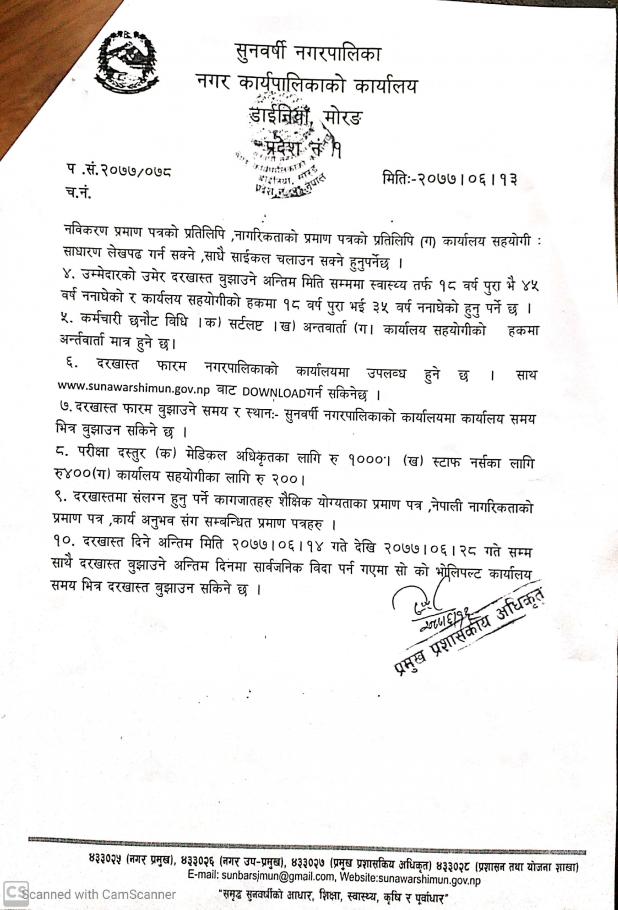 सुनवर्षी नगरपालिका
नगर कार्यपालिकाको कार्यालय
डाईनियाँ, मोरङ
प्रदेश नं १
प .सं.२०७७/०७८
मितिः-२०७७।०६।१३
च.नं.
नविकरण प्रमाण पत्रको प्रतिलिपि ,नागरिकताको प्रमाण पत्रको प्रतिलिपि (ग) कार्यालय सहयोगी :
साधारण लेखपढ गर्न सक्ने ,साधै साईकल चलाउन सक्ने हुनुपर्नेछ ।
४. उम्मेदारको उमेर दरखास्त बुझाउने अन्तिम मिति सम्ममा स्वास्थ्य तर्फ १८ वर्ष पुरा भै ४५
वर्ष ननाघेको र कार्यलय सहयोगीको हकमा १८ वर्ष पुरा भई ३५ वर्ष ननाघेको हुनु पर्ने छ ।
५. कर्मचारी छनौट विधि ।क) सर्टलिष्ट ।ख) अन्तवार्ता (ग। कार्यालय सहयोगीको हकमा
अर्न्तवार्ता मात्र हुने छ।
६. दरखास्त फारम नगरपालिकाको कार्यालयमा उपलव्ध हुने छ । साथ
www.sunawarshimun.gov.np वाट DOWNLOADगर्न सकिनेछ ।
७. दरखास्त फारम वुझाउने समय र स्थानः- सुनवर्षी नगरपालिकाको कार्यालयमा कार्यालय समय
भित्र बुझाउन सकिने छ ।
८. परीक्षा दस्तुर (क) मेडिकल अधिकृतका लागि रु १०००। (ख) स्टाफ नर्सका लागि
रु४००(ग) कार्यालय सहयोगीका लागि रु २००।
९. दरखास्तमा संलग्न हुनु पर्ने कागजातहरु शैक्षिक योग्यताका प्रमाण पत्र ,नेपाली नागरिकताको
प्रमाण पत्र ,कार्य अनुभव संग सम्बन्धित प्रमाण पत्रहरु ।
१०. दरखास्त दिने अन्तिम मिति २०७७।०६।१४ गते देखि २०७७।०६।२८ गते सम्म
साथै दरखास्त बुझाउने अन्तिम दिनमा सार्वजनिक विदा पर्न गएमा सो को भोलिपल्ट कार्यालय
समय भित्र दरखास्त बुझाउन सकिने छ ।
प्रमुख प्रशासकीय अधिकृत
४३३०२५ (नगर प्रमुख), ४३३०२६ (नगर उप-प्रमुख), ४३३०२७ (प्रमुख प्रशासकिय अधिकृत) ४३३०२८ (प्रशासन तथा योजना शाखा)
E-mail: sunbarsjmun@gmail.com, Website:sunawarshimun.gov.np
"समृद्ध सुनवर्षीको आधार, शिक्षा, स्वास्थ्य, कृषि र पूर्वाधार"
CS Scanned with CamScanner